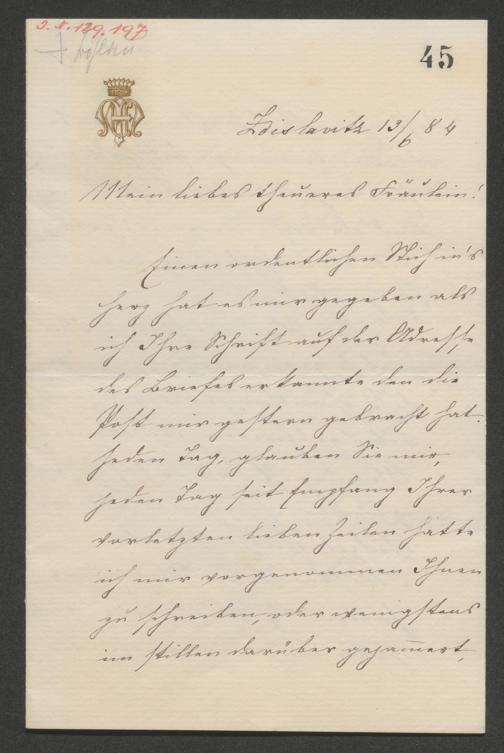 J. N. 129.197
45
Zdislavitz 13/6 84
Mein liebes theueres Fräulein!
Einen ordentlichen Stich in's
Herz hat es mir gegeben als
ich Ihre Schrift auf der Adresse
des Briefes erkannte den die
Post mir gestern gebracht hat.
Jeden Tag, glauben Sie mir,
jeden Tag seit Empfang Ihrer
vorletzten lieben Zeilen hatte
ich mir vorgenommen Ihnen
zu schreiben, oder wenigstens
im stillen darüber gejam̄ert,